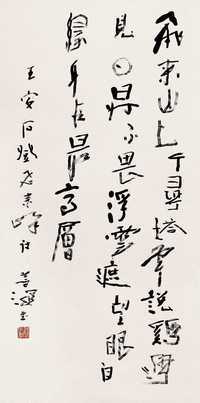 飛來山上千尋塔聞說鷄鳴
見日昇不畏浮雲遮望眼自
緣身在最高層
王安石登飛來峰詩